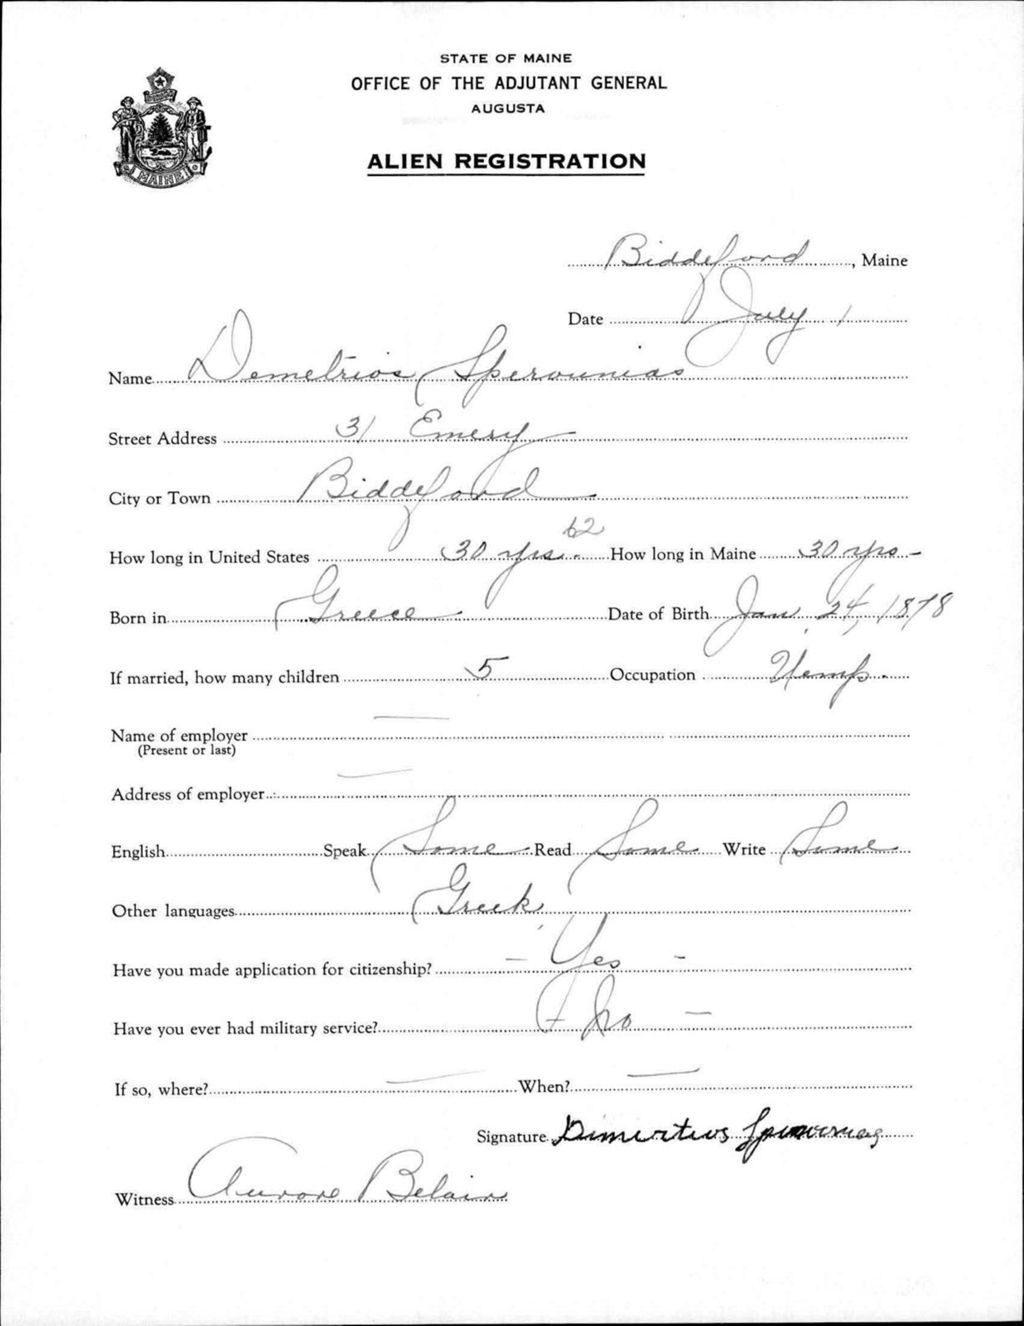 STATE OF MAINE
OFFICE OF THE ADJUTANT GENERAL
AUGUSTA
ALIEN REGISTRATION
MAINE
Biddeford, Maine
Date July 1
Name Demetrios Sperounias
Street Address 31 Emery
City or Town Biddeford
62
How long in United States 30 yrs. How long in Maine 30 yrs
Born in Greece Date of Birth Jan. 24, 1878
If married, how many children 5 Occupation Unemp.
Name of employer
(Present or last)
Address of employer
English Speak Some Read Some Write Some
Other languages Greek
Have you made application for citizenship? - Yes -
Have you ever had military service? - No -
If so, where? When?
Signature
Witness Aurore Belair